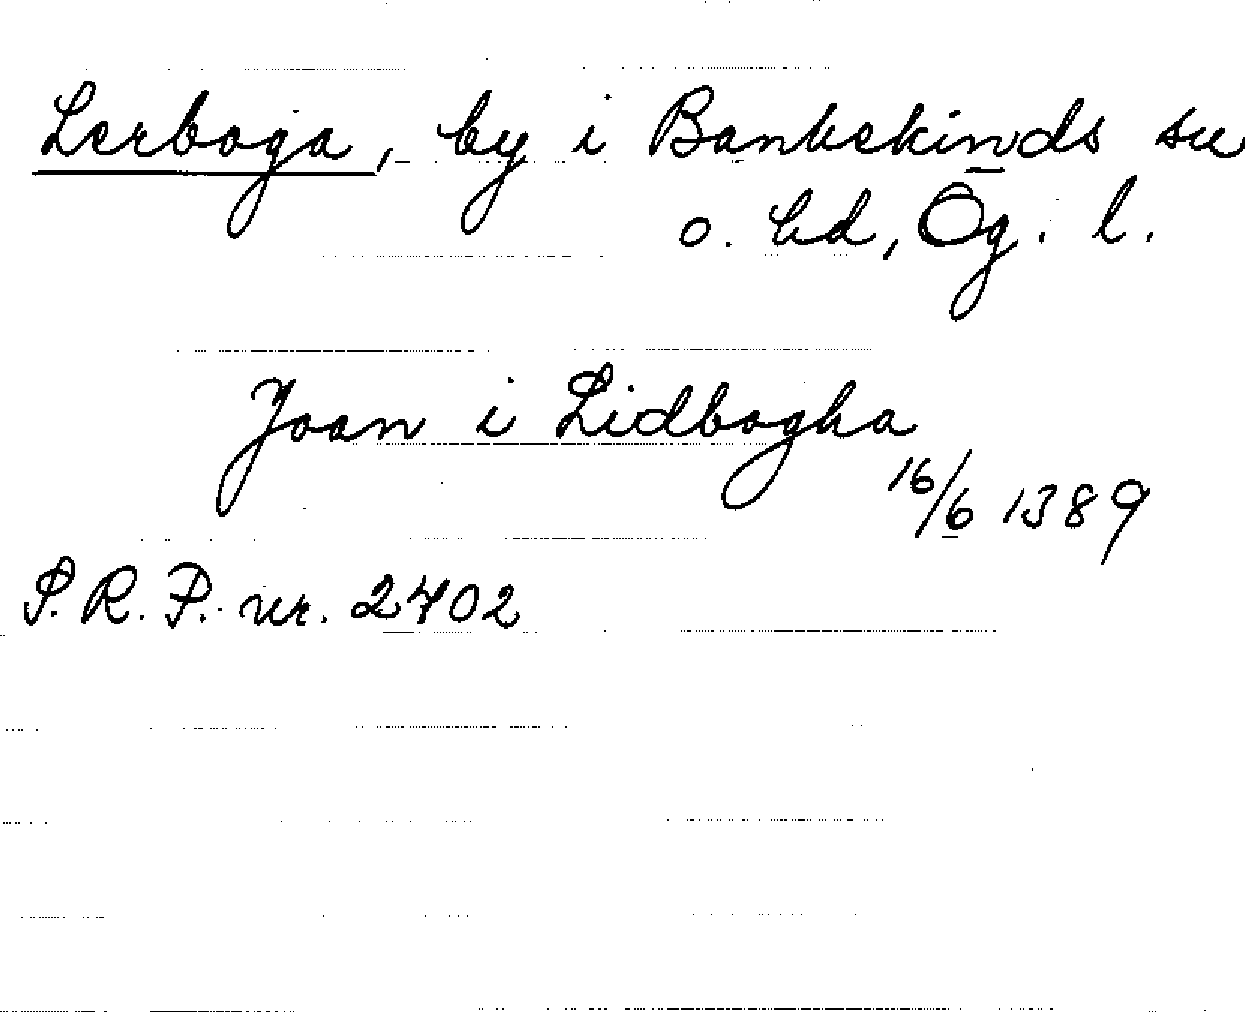 Lerboga, by i Bankekinds sn
o. hd, Ög. l.
Joan i Lidbogha
16/6 1389
S.R.P. nr. 2402